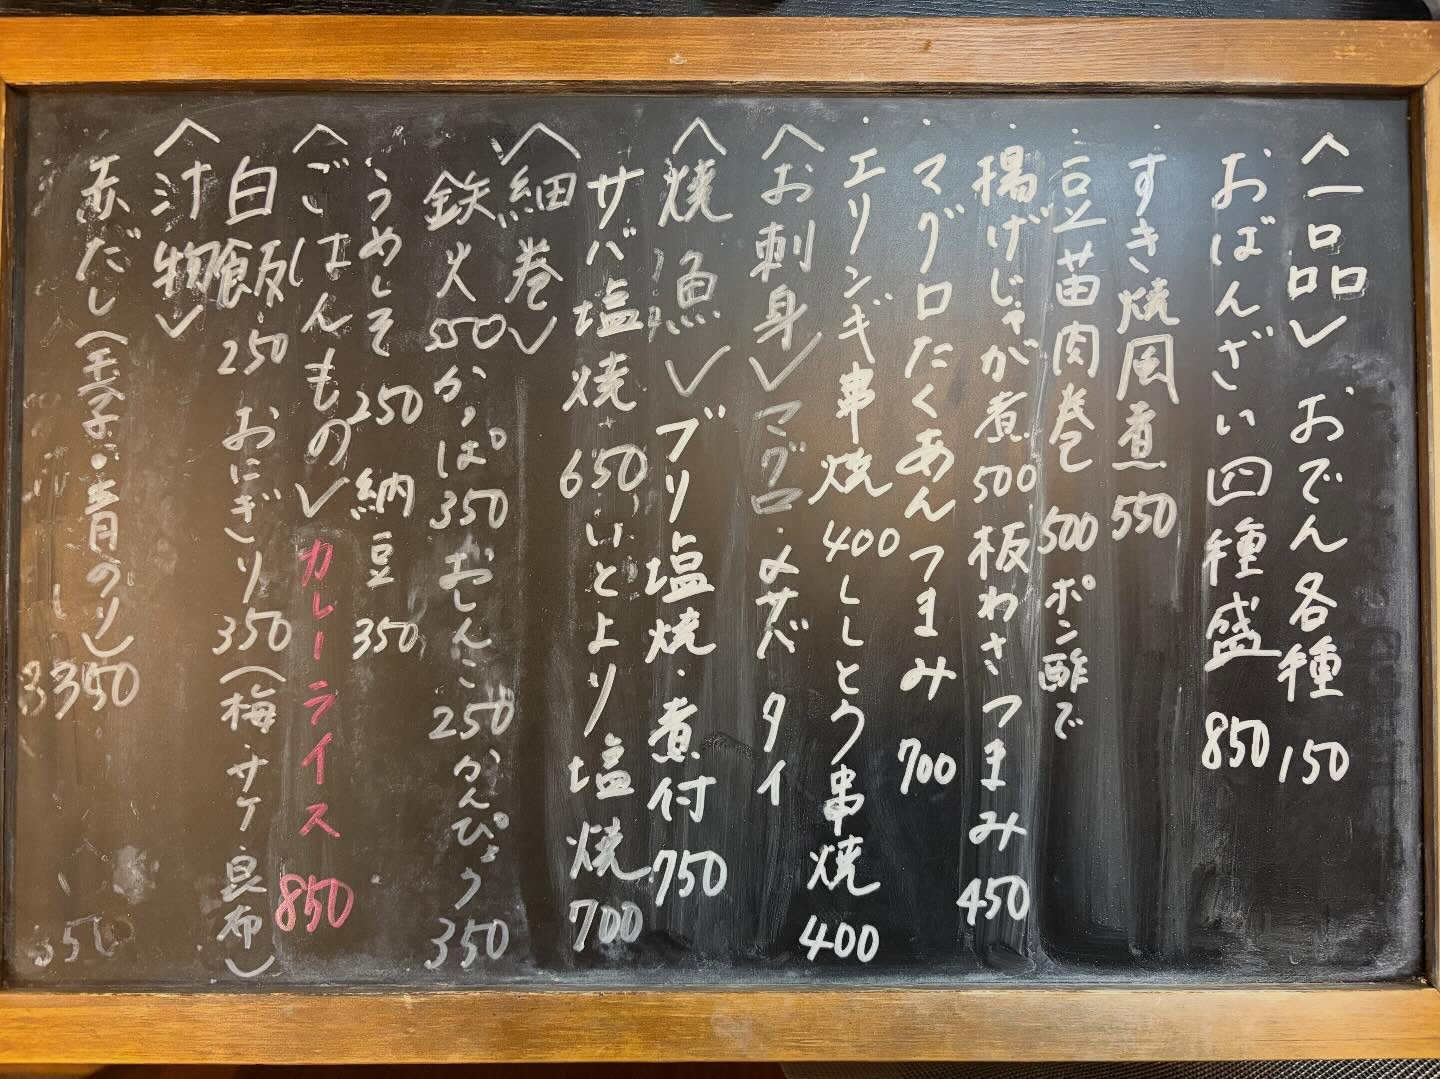 〈一品〉おでん各種 150
おばんざい四種盛 850
・すき焼風煮 550
・豆苗肉巻 500 ポン酢で
・揚げじゃが煮 500 板わさつまみ 450
・マグロたくあんつまみ 700
・エリンギ串焼 400 ししとう串焼 400
〈お刺身〉マグロ・〆サバ タイ
〈焼魚〉ブリ塩焼・煮付 750
サバ塩焼 650 いとより塩焼 700
〈細巻〉
鉄火 550 かっぱ 350 おしんこ 250 かんぴょう 350
うめしそ 250 納豆 350
〈ごはんもの〉カレーライス 850
白飯 250 おにぎり 350 (梅・サケ・昆布)
〈汁物〉
赤だし(玉子・青のり) 350
350